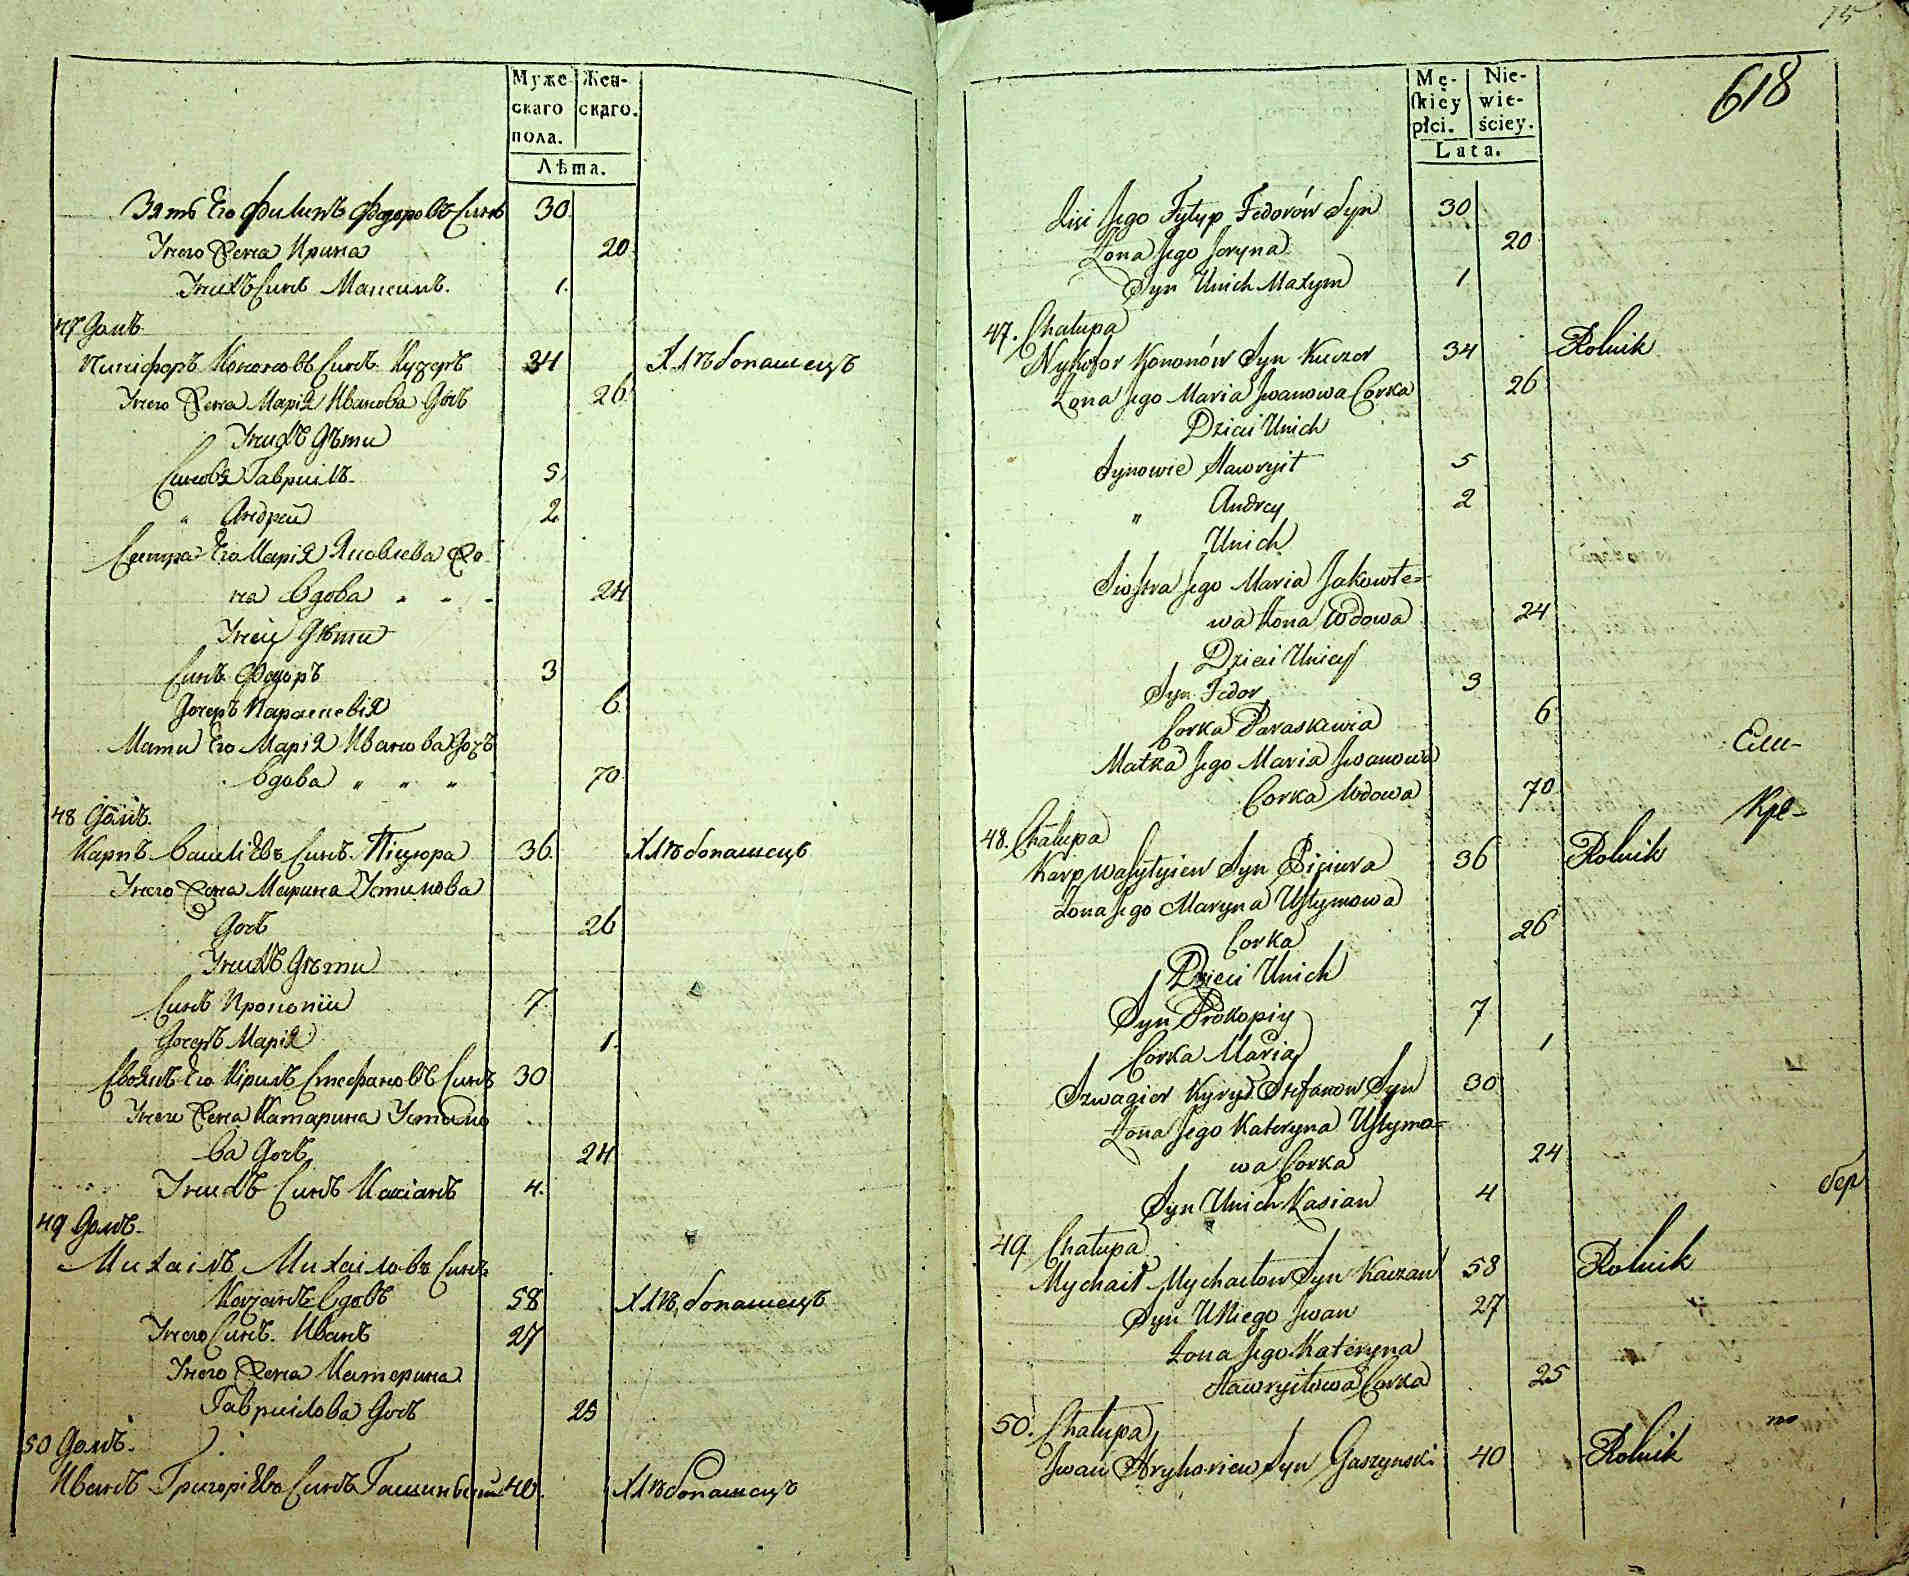 Муже-
скаго
пола.
Жен-
скаго.
Лѣта.
Зять Его Филипъ Федоровъ Синъ 30
Унего Жена Ирина 20
Унихъ Синъ Максимъ. 1.
47 Домъ.
Никифоръ Кононовъ Синъ Кучеръ 34 Хлѣбопашецъ
Унего Жена Марія Иванова Дочь 26
Унихъ Дѣти
Синовя Гавриилъ 5
" Андрей 2
Сестра Его Марія Яковлева Же-
на Вдова 24
Уней Дѣти
Синъ Федоръ 3
Дочеръ Параскевія 6
Мати Его Марія Иванова Дочь
Вдова " " " 70
48 Домъ.
Карпъ Василіевъ Синъ Піцюра 36. Хлѣбопашецъ
Унего Жена Марина Устимова
Дочь 26
Унихъ Дѣти
Синъ Прокопій 7.
Дочеръ Марія 1.
Своякъ Его Кірилъ Стефановъ Синъ 30
Унего Жена Катарина Устимо
ва Дочь 24
Унихъ Синъ Касіанъ 4.
49 Домъ.
Михаилъ Михаиловъ Синъ
Качанъ Вдовъ 58 Хлѣбопашецъ
Унего Синъ Иванъ 27
Унего Жена Катерина
Гавриилова Дочь 25
50 Домъ.
Иванъ Григоріевъ Синъ Гашинскій 40. Хлѣбопашецъ
75
618
Mę-
skiey
płci.
Nie-
wie-
ściey.
Lata.
Jego Fylyp Fedorów Syn 30
Żona Jego Jeryna 20
Syn Unich Maxym 1
47. Chałupa
Nykifor Kononów Syn Kuczer 34 Rolnik
Żona Jego Maria Jwanowa Corka 26
Dzieci Unich
Synowie Hawryił 5
" Andrey 2
Unich
Siostra Jego Maria Jakowle=
wa Żona Wdowa 24
Dzieci Uniey
Syn Fedor 3
Corka Paraskiewia 6
Matka Jego Maria Jwanowa
Corka Wdowa 70
Сели-
Кре-
48. Chałupa
Karp Wasylyiew Syn Piciura 36 Rolnik
Żona Jego Maryna Ustymowa
Corka 26
Dzieci Unich
Syn Prokopiy 7
Corka Maria 1
Szwagier Kyrył Stefanow Syn 30
Żona Jego Kateryna Ustymo=
wa Corka 24
Syn Unich Kasian 4
бер
49 Chałupa
Mychaił Mychaiłow Syn Kaczan 58 Rolnik
Syn Uniego Jwan 27
Żona Jego Kateryna
Hawryiłowa Corka 25
50. Chałupa
Jwan Hryhoriew Syn Gaszynski 40 Rolnik